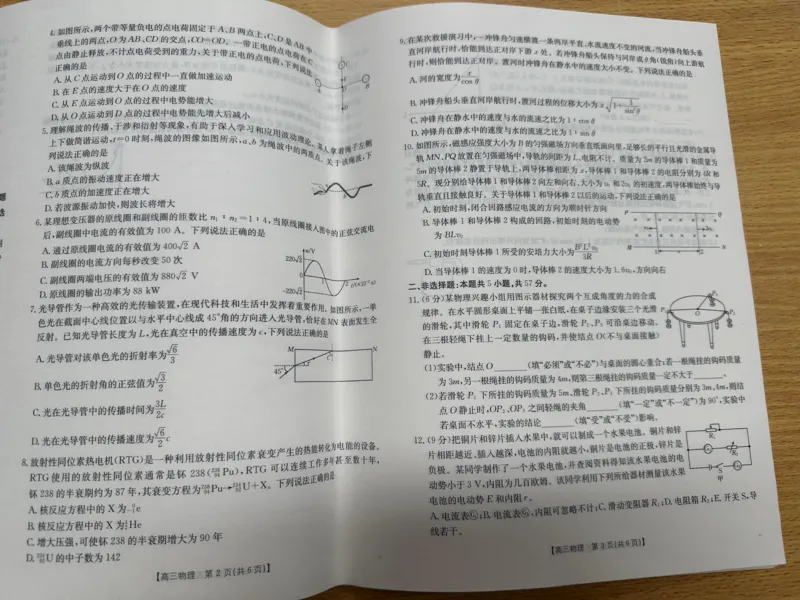 4. 如图所示,两个带等量负电的点电荷固定于 A、B 两点上,C、D 是 AB 中
垂线上的两点,O 为 AB、CD 的交点,CO=OD。一带正电的点电荷在 C
点由静止释放,不计点电荷受到的重力,关于带正电的点电荷,下列说法
正确的是
A. 从 C 点运动到 O 点的过程中一直做加速运动
B. 在 E 点的速度大于在 O 点的速度
C. 从 E 点运动到 O 点的过程中电势能增大
D. 从 O 点运动到 D 点的过程中电势能先增大后减小
5. 理解绳波的传播、干涉和衍射等现象,有助于深入学习和应用波动理论。某人拿着绳子左侧
上下做简谐运动,t=0 时刻,绳波的图像如图所示,a、b 为绳波中的两质点。关于该绳波,下
列说法正确的是
A. 该绳波为纵波
B. a 质点的振动速度正在增大
C. b 质点的加速度正在增大
D. 若波源振动加快,则波长将增大
6. 某理想变压器的原线圈和副线圈的匝数比 n₁:n₂=1:4,当原线圈接入图中的正弦交流电
后,副线圈中电流的有效值为 100 A。下列说法正确的是
A. 通过原线圈电流的有效值为 400√2 A
B. 副线圈的电流方向每秒改变 50 次
C. 副线圈两端电压的有效值为 880√2 V
D. 原线圈的输出功率为 88 kW
u/V
220√2
0
1
2
-220√2
7. 光导管作为一种高效的光传输装置,在现代科技和生活中发挥着重要作用。如图所示,一单
色光在截面中心线位置以与水平中心线成 45°角的方向进入光导管,恰好在 MN 表面发生全
反射。已知光导管长度为 L,光在真空中的传播速度为 c,下列说法正确的是
A. 光导管对该单色光的折射率为√6/3
B. 单色光的折射角的正弦值为√3/2
C. 光在光导管中的传播时间为3L/2c
D. 光在光导管中的传播速度为√6/2 c
M
N
45°
C
8. 放射性同位素热电机(RTG)是一种利用放射性同位素衰变产生的热能转化为电能的设备。
RTG 使用的放射性同位素通常是钚 238(²³⁸₉₄Pu),RTG 可以连续工作多年甚至数十年,
钚 238 的半衰期约为 87 年,其衰变方程为²³⁸₉₄Pu→²³⁴₉₂U+X。下列说法正确的是
A. 核反应方程中的 X 为⁰₋₁e
B. 核反应方程中的 X 为⁴₂He
C. 增大压强,可使钚 238 的半衰期增大为 90 年
D. ²³⁴₉₂U 的中子数为 142
【高三物理 第 2 页(共 6 页)】
9. 在某次救援演习中,一冲锋舟匀速横渡一条两岸平直、水流速度不变的河流,当冲锋舟船头垂
直河岸航行时,恰能到达正对岸下游 x 处。若冲锋舟船头保持与河岸成 θ 角(锐角)向上游航
行时,则恰能到达正对岸。渡河时冲锋舟在静水中的速度大小不变。下列说法正确的是
A. 河的宽度为 x/cos θ
B. 冲锋舟船头垂直河岸航行时,渡河过程的位移大小为 x√(1+1/sin²θ)
C. 冲锋舟在静水中的速度与水的流速之比为 1:cos θ
D. 冲锋舟在静水中的速度与水的流速之比为 1:sin θ
10. 如图所示,磁感应强度大小为 B 的匀强磁场方向垂直纸面向里,足够长的平行且光滑的金属导
轨 MN、PQ 放置在匀强磁场中,导轨的间距为 L,电阻不计。质量为 3m 的导体棒 1 和质量为
5m 的导体棒 2 静置于导轨上,两导体棒相距为 x,导体棒 1 和导体棒 2 的电阻分别为 4R 和
5R。现分别给导体棒 1 和导体棒 2 向左和向右、大小为 v₀ 和 2v₀ 的初速度,两导体棒始终与导
轨垂直且接触良好。关于导体棒 1 和导体棒 2 以后的运动,下列说法正确的是
A. 初始时刻,闭合回路感应电流的方向为顺时针方向
B. 导体棒 1 和导体棒 2 构成的回路,初始时刻的电动势
为 BLv₀
C. 初始时刻导体棒 1 所受的安培力大小为B²L²v₀/3R
D. 当导体棒 1 的速度为 0 时,导体棒 2 的速度大小为 1.6v₀,方向向右
二、非选择题:本题共 5 小题,共 57 分。
11. (6 分)某物理兴趣小组用图示器材探究两个互成角度的力的合成
规律。在水平圆形桌面上平铺一张白纸,在桌子边缘安装三个光滑
的滑轮,其中滑轮 P₁ 固定在桌子边,滑轮 P₂、P₃ 可沿桌边移动。
在三根轻绳下挂上一定数量的钩码,并使结点 O(不与桌面接触)
静止。
(1)实验中,结点 O______(填“必须”或“不必”)与桌面的圆心重合;若一根绳挂的钩码质量
为 3m,另一根绳挂的钩码质量为 4m,则第三根绳挂的钩码质量一定不大于______。
(2)若滑轮 P₁ 下所挂的钩码质量为 5m,滑轮 P₂、P₃ 下所挂的钩码质量分别为 3m、4m,则结
点 O 静止时,OP₂、OP₃ 之间轻绳的夹角______(填“一定”或“不一定”)为 90°,实验中
若桌面不水平,实验的结论______(填“受”或“不受”)影响。
12. (9 分)把铜片和锌片插入水果中,就可以制成一个水果电池。铜片和锌
片相距越近、插入越深,电池的内阻就越小,铜片是电池的正极,锌片是
负极。某同学制作了一个水果电池,并查阅资料得知该水果电池的电
动势小于 3 V,内阻为几百欧姆。该同学利用下列所给器材测量该水果
电池的电动势 E 和内阻 r。
A. 电流表;B. 电流表,内阻可忽略不计;C. 滑动变阻器 R₁;D. 电阻箱 R₂;E. 开关 S,导
线若干。
甲
【高三物理 第 3 页(共 6 页)】